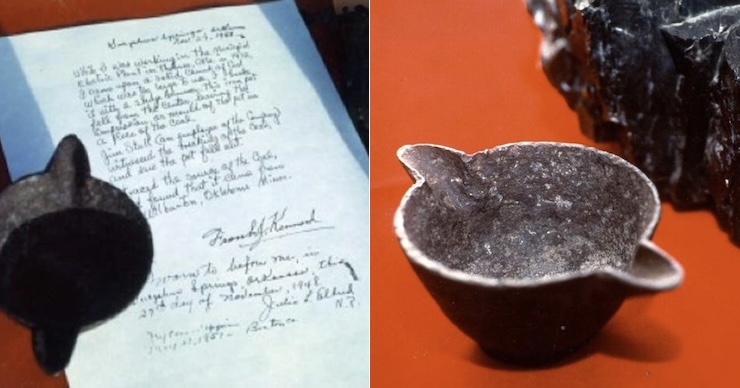 Sulphur Springs, Arkan
Nov. 27, 1948
While I was working in the Municipal
Electric Plant in Thomas, Okla. in 1912,
I came upon a solid chunk of coal
which was too large to use. I broke
it with a sledge hammer. This iron pot
fell from the center, leaving the
impression, or mould of the pot in
a piece of the coal.
Jim Stull (an employee of the Company)
witnessed the breaking of the coal,
and saw the pot fall out.
traced the source of the coal,
found that it came from
Wilburton, Oklahoma Mines.
Frank J. Kennard
Sworn to before me, in
Sulphur Springs, Arkansas, this
27th day of November, 1948
Julia L. Eldred
N.P.
My Com. expires
1951 - Benton Co.